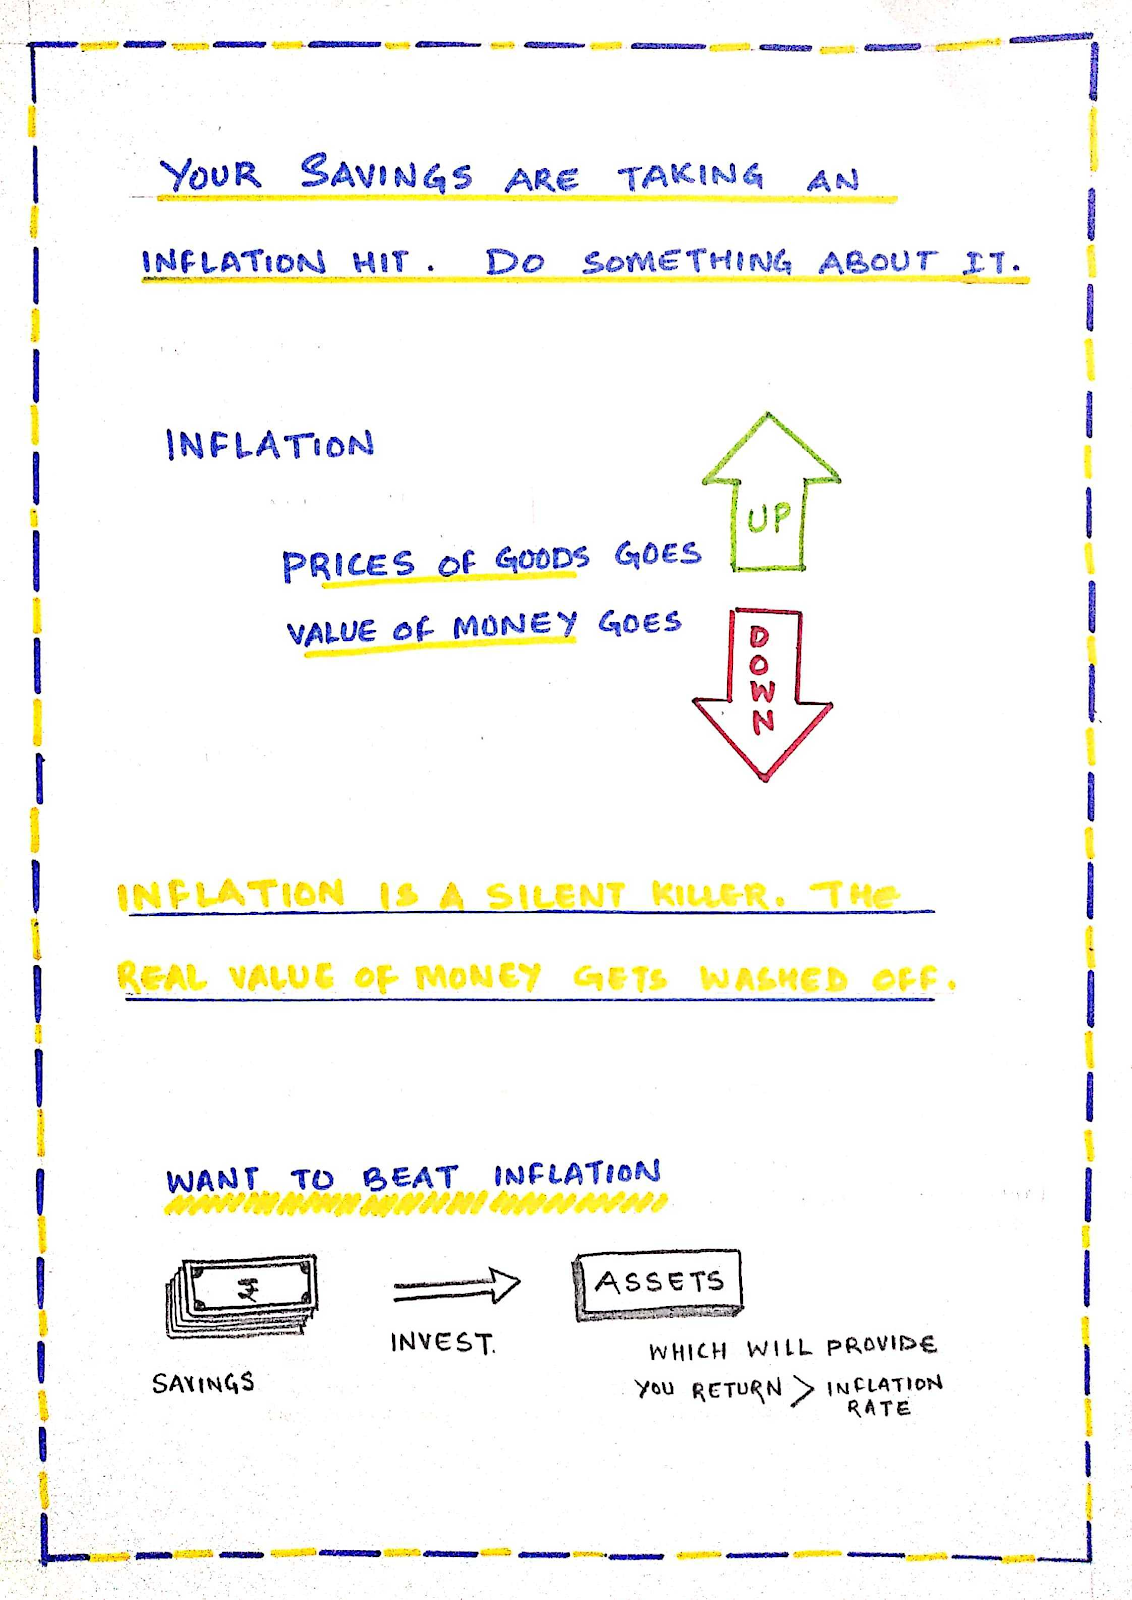 YOUR SAVINGS ARE TAKING AN
INFLATION HIT. DO SOMETHING ABOUT IT.
INFLATION
UP
PRICES OF GOODS GOES
VALUE OF MONEY GOES
DOWN
INFLATION IS A SILENT KILLER. THE
REAL VALUE OF MONEY GETS WASHED OFF.
WANT TO BEAT INFLATION
₹
ASSETS
INVEST.
WHICH WILL PROVIDE
SAVINGS
YOU RETURN > INFLATION
RATE